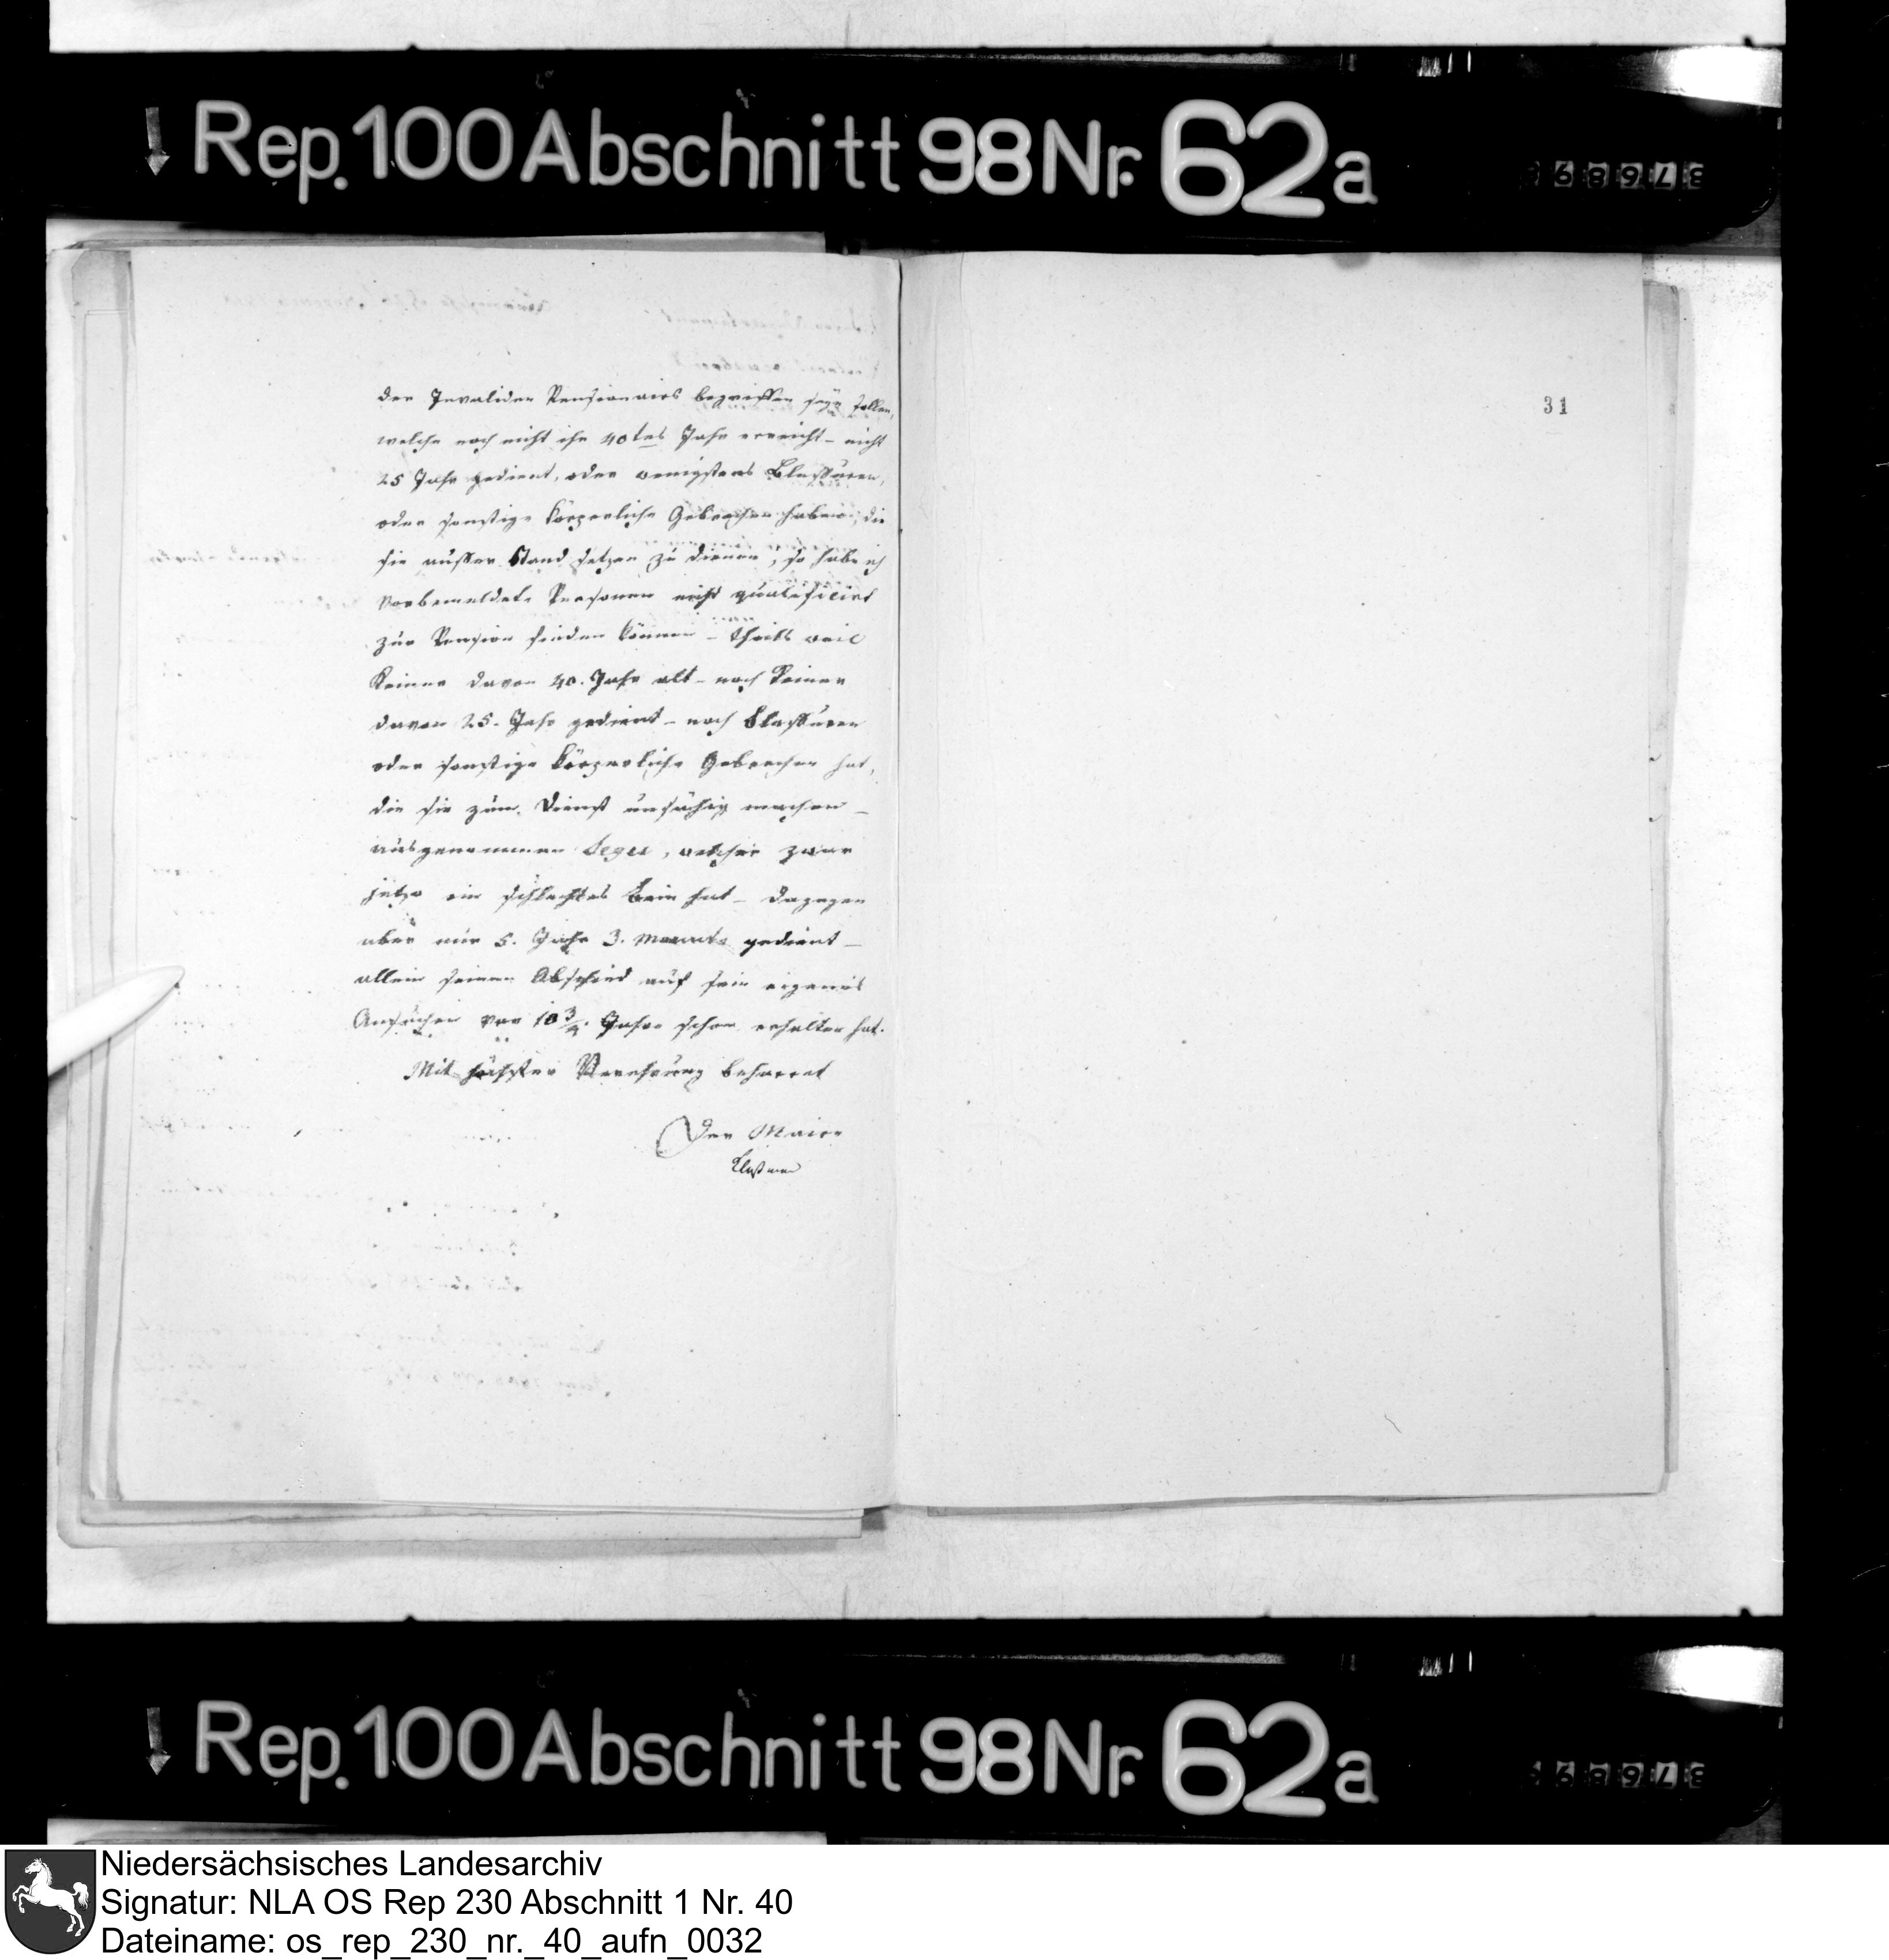 Rep. 100 Abschnitt 98 Nr. 62a
der Invaliden Pensionairs begriffen seyn sollen,
welche noch nicht ihr 40tes Jahr erreicht - nicht
25 Jahr gedient, oder wenigstens Blessuren,
oder sonstige körperliche Gebrechen haben, die
sie ausser Stand setzen zu dienen, so habe ich
vorbemeldete Personen nicht qualificirt
zur Pension finden können - theils weil
keiner davon 40. Jahr alt - noch keiner
davon 25. Jahr gedient - noch Blessuren
oder sonstige körperliche Gebrechen hat,
die sie zum Dienst unfähig machen -
ausgenommen welcher zwar
jetzo ein schlechtes Bein hat - dagegen
aber nur 5. Jahr 3. Monate gedient -
allein seinen Abschied auf sein eigenes
Ansuchen vor 10 3/4 Jahre schon erhalten hat.
Mit höchster Verehrung beharret
Der Maire
31
Rep. 100 Abschnitt 98 Nr. 62a
Niedersächsisches Landesarchiv
Signatur: NLA OS Rep 230 Abschnitt 1 Nr. 40
Dateiname: os_rep_230_nr._40_aufn_0032